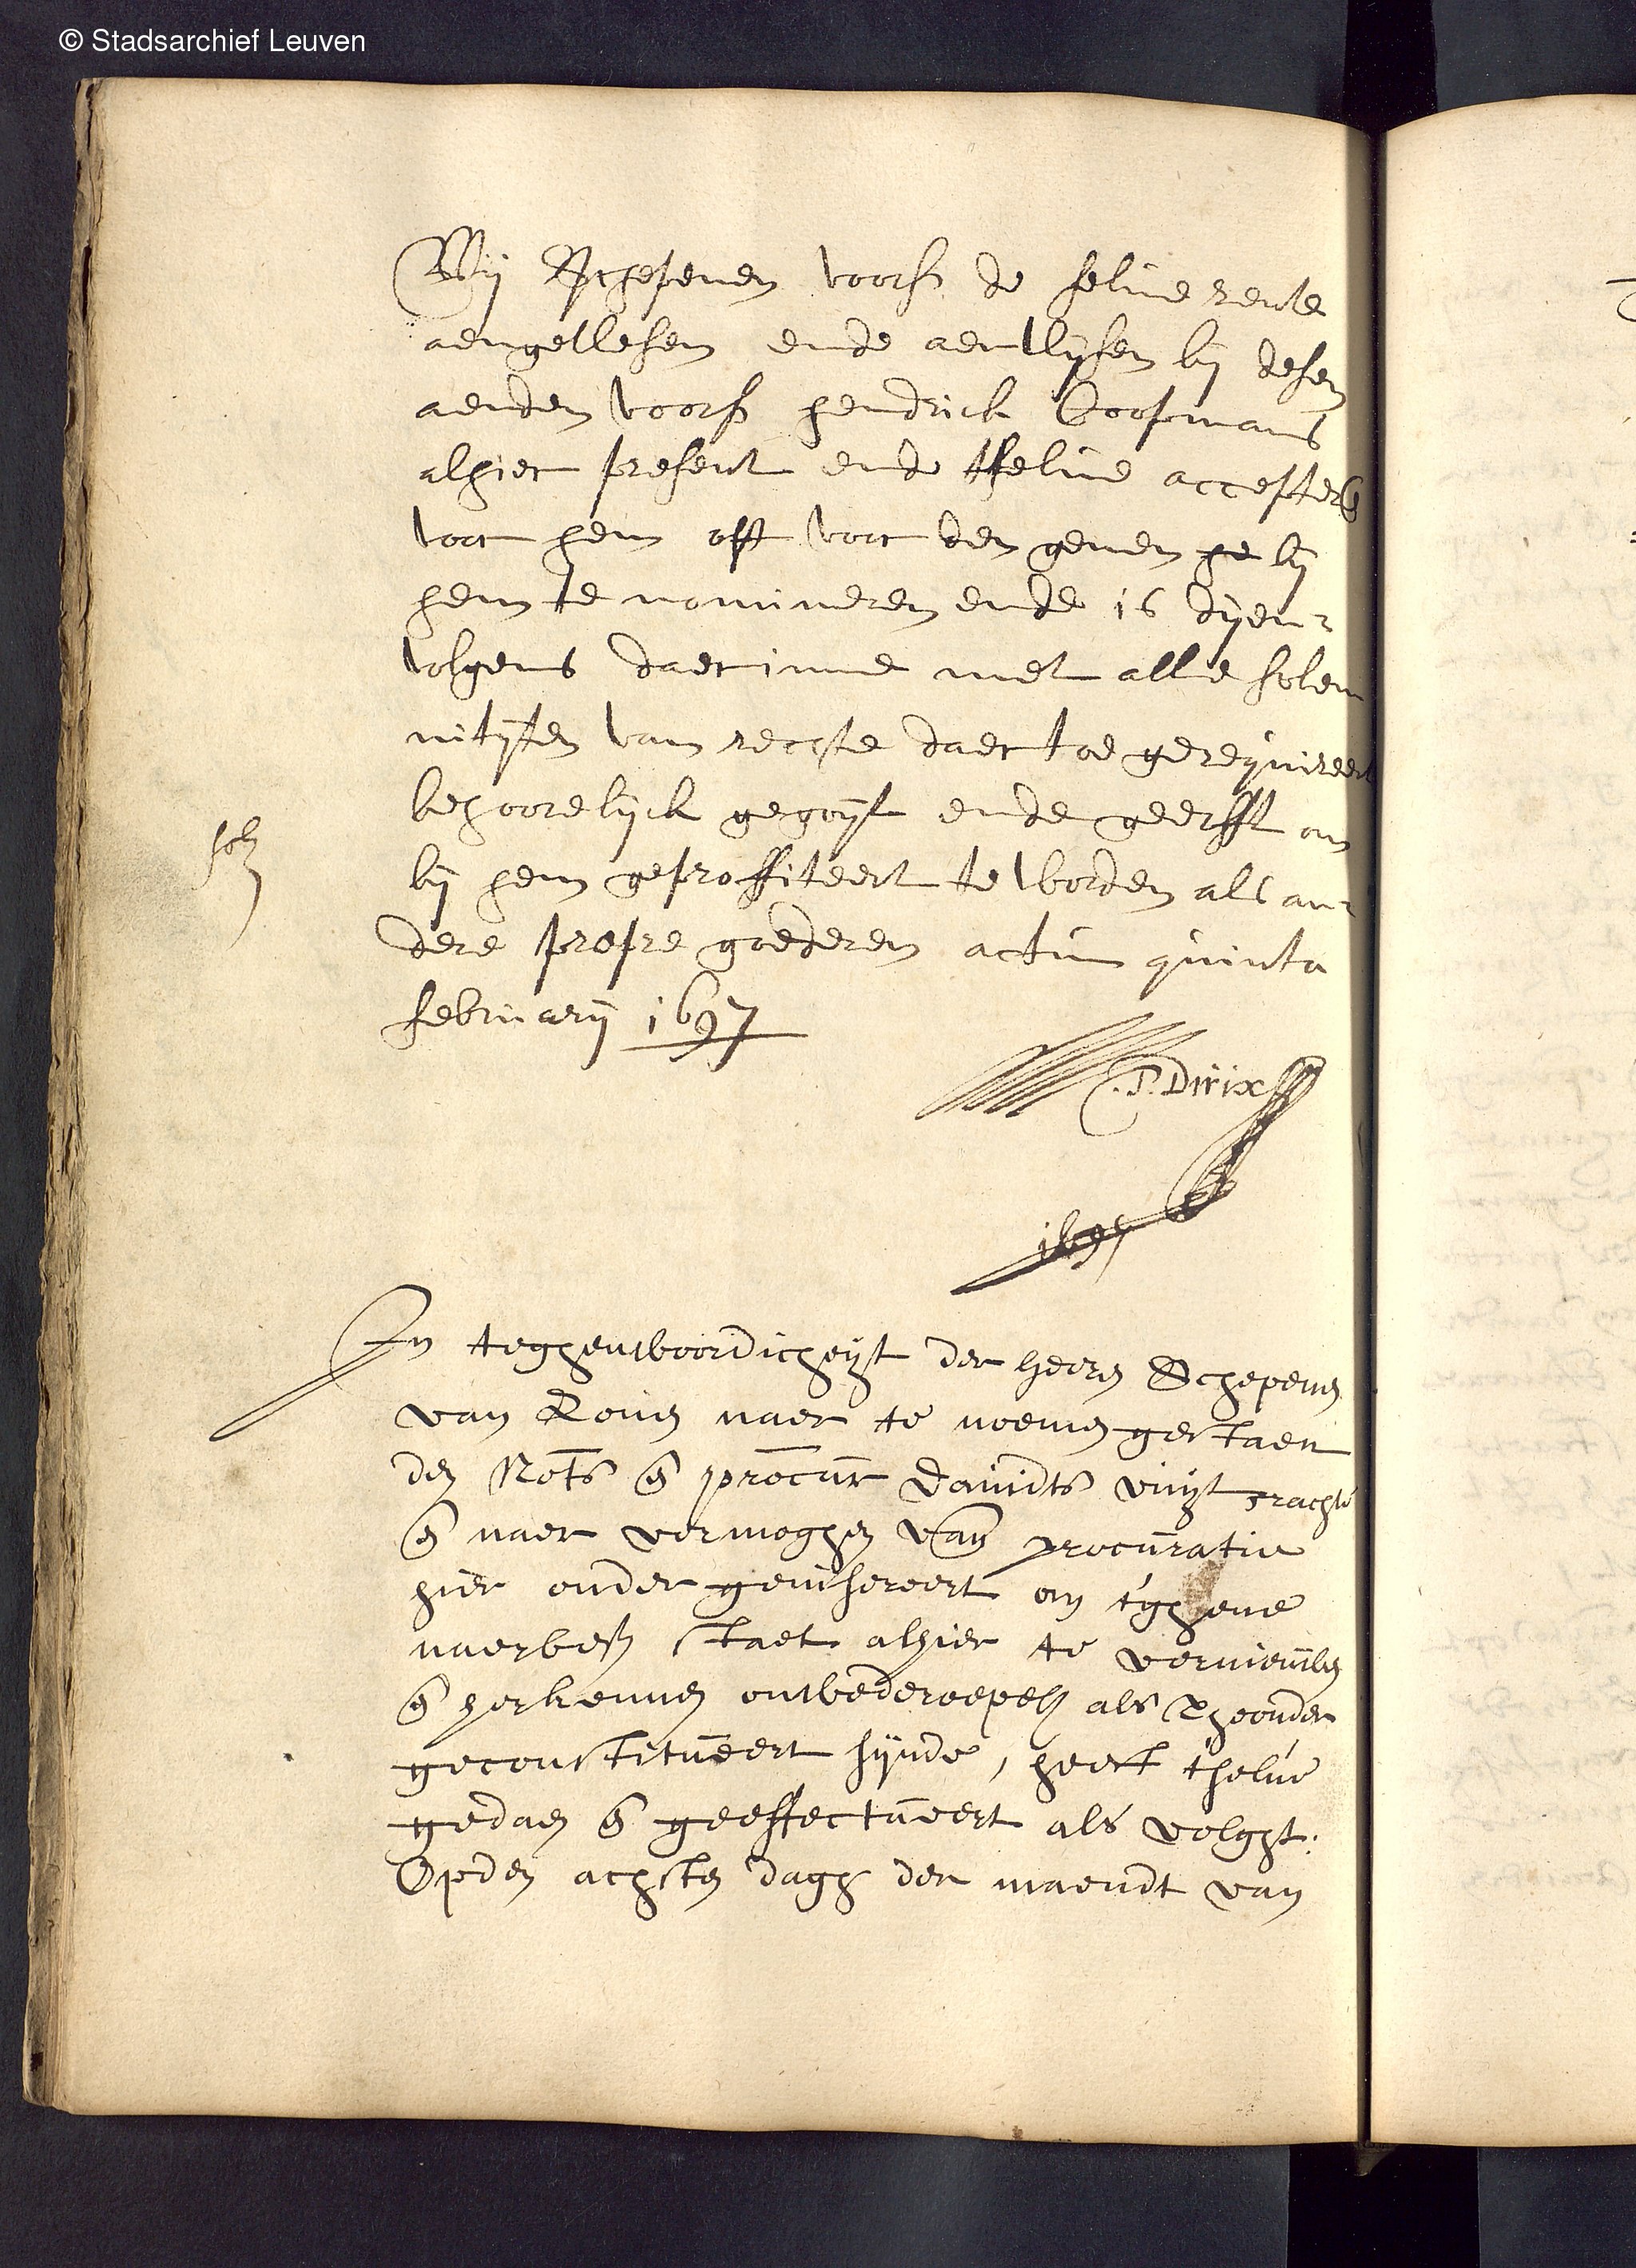 © Stadsarchief Leuven
Wij Schepenen voors de selve rente
aengewesen ende aenwijsen bij desen
aenden voors hendrick Coopmans
alhier present ende tselve accepter
voor hem oft voor den genen he bij
hem te nomineren ende is dijen-
volgens daerinne met alle solem
nityten van rechte daer toe gerequireert
behoorelijck gegoyt ende geerfft om
solt
bij hem geproffiteert te worden als an-
dere propre goederen actum quinta
februarij 1697
P. Dirix
1697
In teghenwoordicheyt der heeren Schepenen
van naer te noemen gestaen
den Nots en procur Davidts vuyt crachte
en naer vermoghen van procuratie
hier onder geinsereert om t'ghene
naerbes staet alhier te vernieuwen
en herkennen onwederroepelck als
geconstitueert sijnde, heeft t'selve
gedaen en geeffectueert als volght.
Opden achsten dagh der maendt van